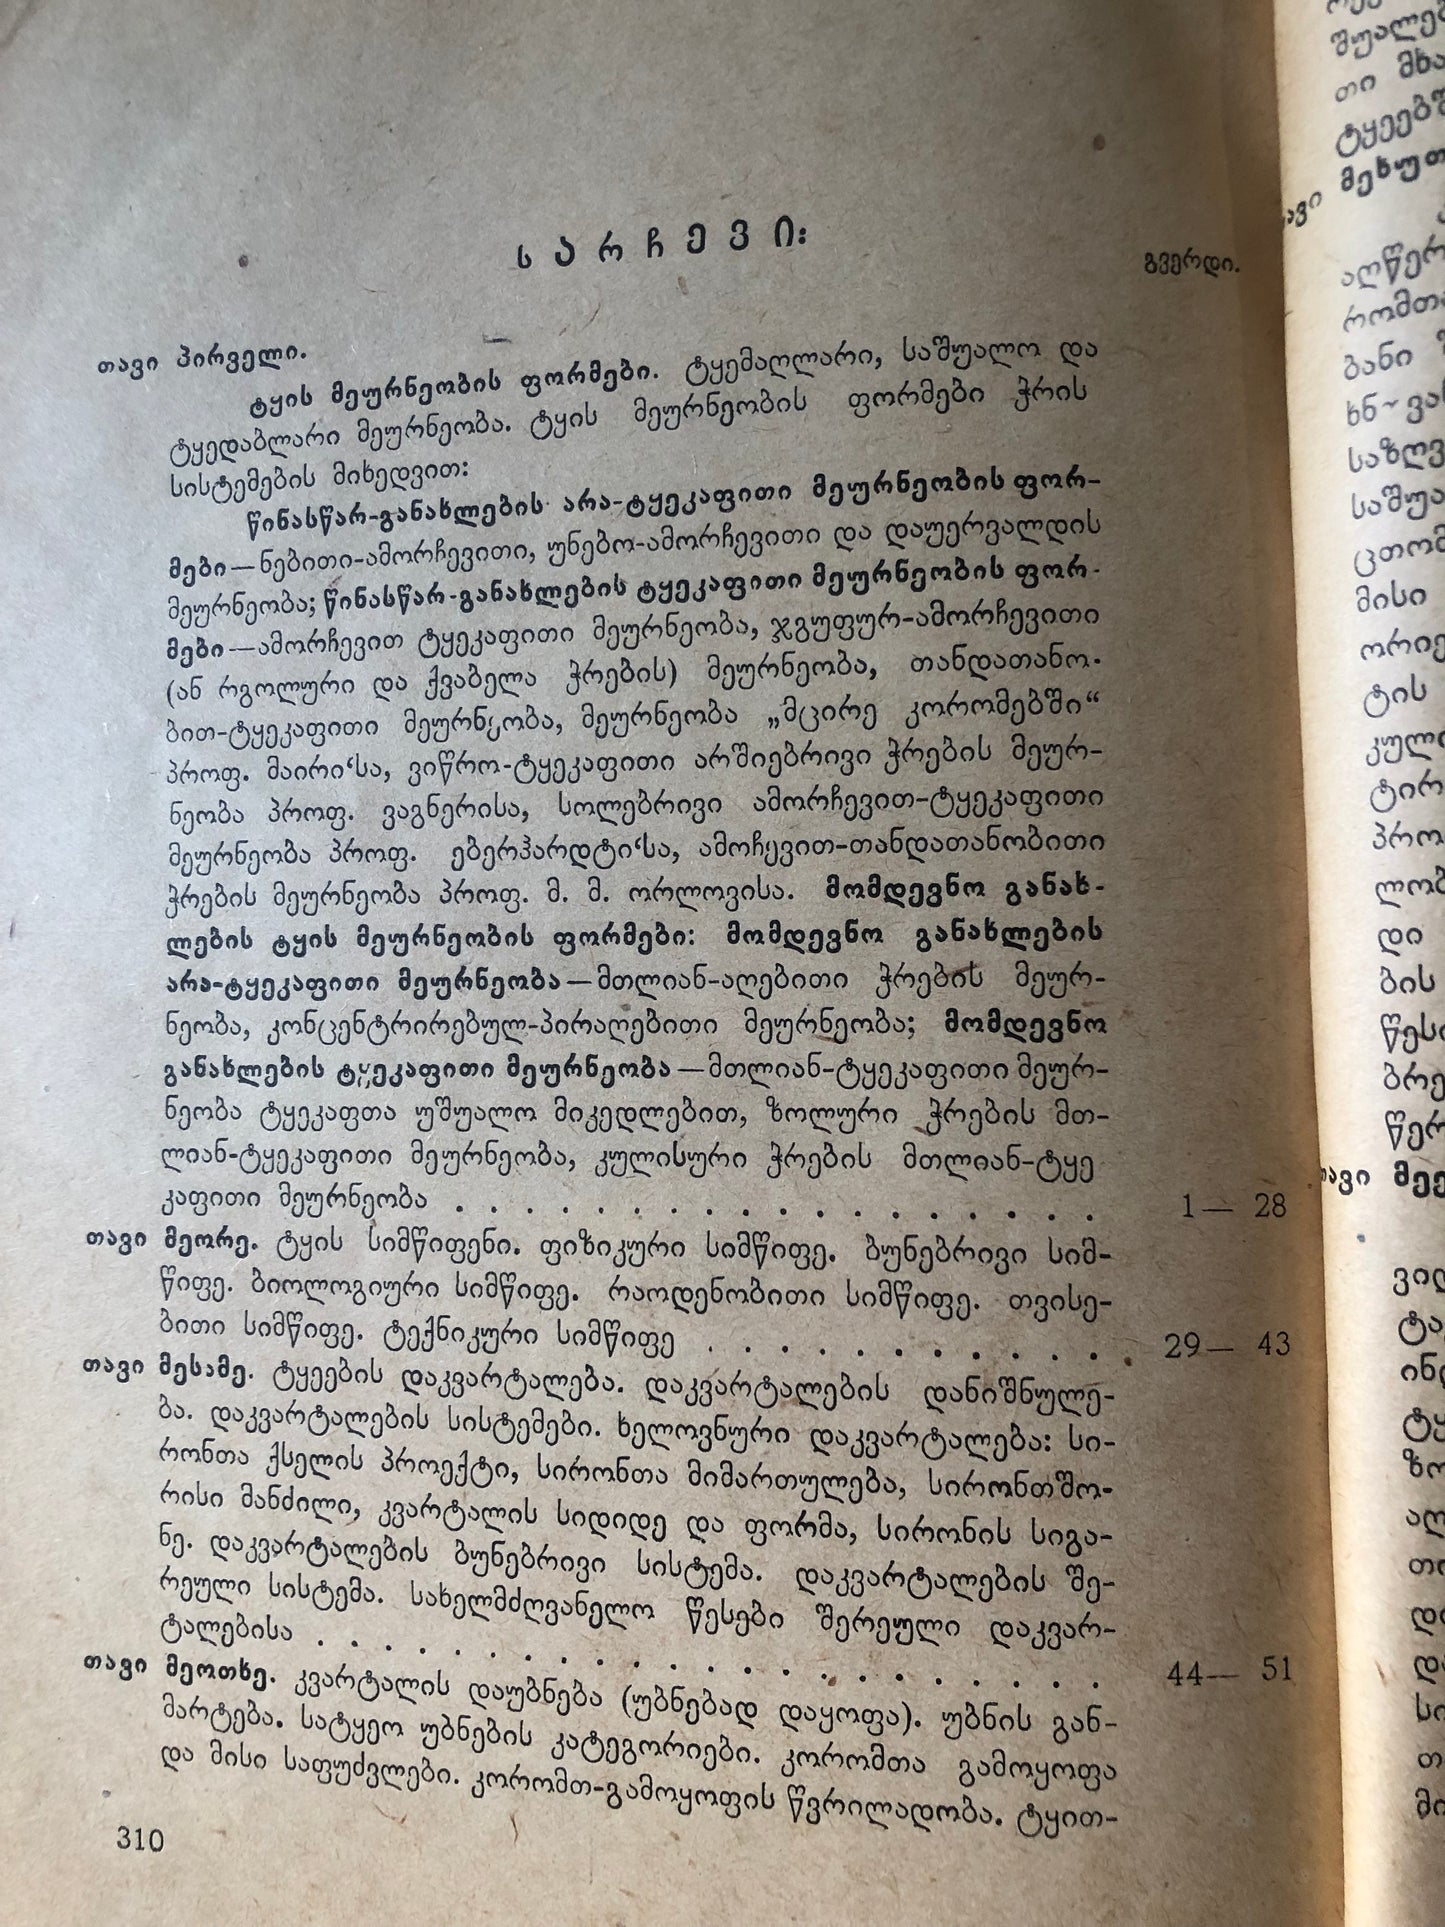 სარჩევი:
გვერდი.
თავი პირველი.
ტყის მეურნეობის ფორმები. ტყემაღლარი, საშუალო და
ტყედაბლარი მეურნეობა. ტყის მეურნეობის ფორმები ჭრის
სისტემების მიხედვით:
წინასწარ-განახლების არა-ტყეკაფითი მეურნეობის ფორ-
მები—ნებითი-ამორჩევითი, უნებო-ამორჩევითი და დაუერვალდის
მეურნეობა; წინასწარ-განახლების ტყეკაფითი მეურნეობის ფორ-
მები—ამორჩევით ტყეკაფითი მეურნეობა, ჯგუფურ-ამორჩევითი
(ან რგოლური და ქვაბელა ჭრების) მეურნეობა, თანდათანო-
ბით-ტყეკაფითი მეურნეობა, მეურნეობა „მცირე კორომებში“
პროფ. მაირი‘სა, ვიწრო-ტყეკაფითი არშიებრივი ჭრების მეურ-
ნეობა პროფ. ვაგნერისა, სოლებრივი ამორჩევით-ტყეკაფითი
მეურნეობა პროფ. ებერჰარდტი‘სა, ამოჩევით-თანდათანობითი
ჭრების მეურნეობა პროფ. მ. მ. ორლოვისა. მომდევნო განახ-
ლების ტყის მეურნეობის ფორმები: მომდევნო განახლების
არა-ტყეკაფითი მეურნეობა—მთლიან-აღებითი ჭრების მეურ-
ნეობა, კონცენტრირებულ-პირაღებითი მეურნეობა; მომდევნო
განახლების ტყეკაფითი მეურნეობა—მთლიან-ტყეკაფითი მეურ-
ნეობა ტყეკაფთა უშუალო მიკედლებით, ზოლური ჭრების მთ-
ლიან-ტყეკაფითი მეურნეობა, კულისური ჭრების მთლიან-ტყე
კაფითი მეურნეობა . . . . . . . . . . . . . . . . . . 1— 28
თავი მეორე. ტყის სიმწიფენი. ფიზიკური სიმწიფე. ბუნებრივი სიმ-
წიფე. ბიოლოგიური სიმწიფე. რაოდენობითი სიმწიფე. თვისე-
ბითი სიმწიფე. ტექნიკური სიმწიფე . . . . . . . . . . . . 29— 43
თავი მესამე. ტყეების დაკვარტალება. დაკვარტალების დანიშნულე-
ბა. დაკვარტალების სისტემები. ხელოვნური დაკვარტალება: სი-
რონთა ქსელის პროექტი, სირონთა მიმართულება, სირონთშო-
რისი მანძილი, კვარტალის სიდიდე და ფორმა, სირონის სიგა-
ნე. დაკვარტალების ბუნებრივი სისტემა. დაკვარტალების შე-
რეული სისტემა. სახელმძღვანელო წესები შერეული დაკვარ-
ტალებისა . . . . . . . . . . . . . . . . . . . . . . 44— 51
თავი მეოთხე. კვარტალის დაუბნება (უბნებად დაყოფა). უბნის გან-
მარტება. სატყეო უბნების კატეგორიები. კორომთა გამოყოფა
და მისი საფუძვლები. კორომთ-გამოყოფის წვრილადობა. ტყით-
310
შუალებ
თი მხა
ტყეებშ
მეხუთ
აღწერ
რომთა
ბანი
საზღვ
საშუა
ცთომ
მისი
ორიე
ტის
კული
ტირ
პრო
ლობ
დი
ბის
წესი
ბრე
წერ
თავი მეე
ვიდ
ტა